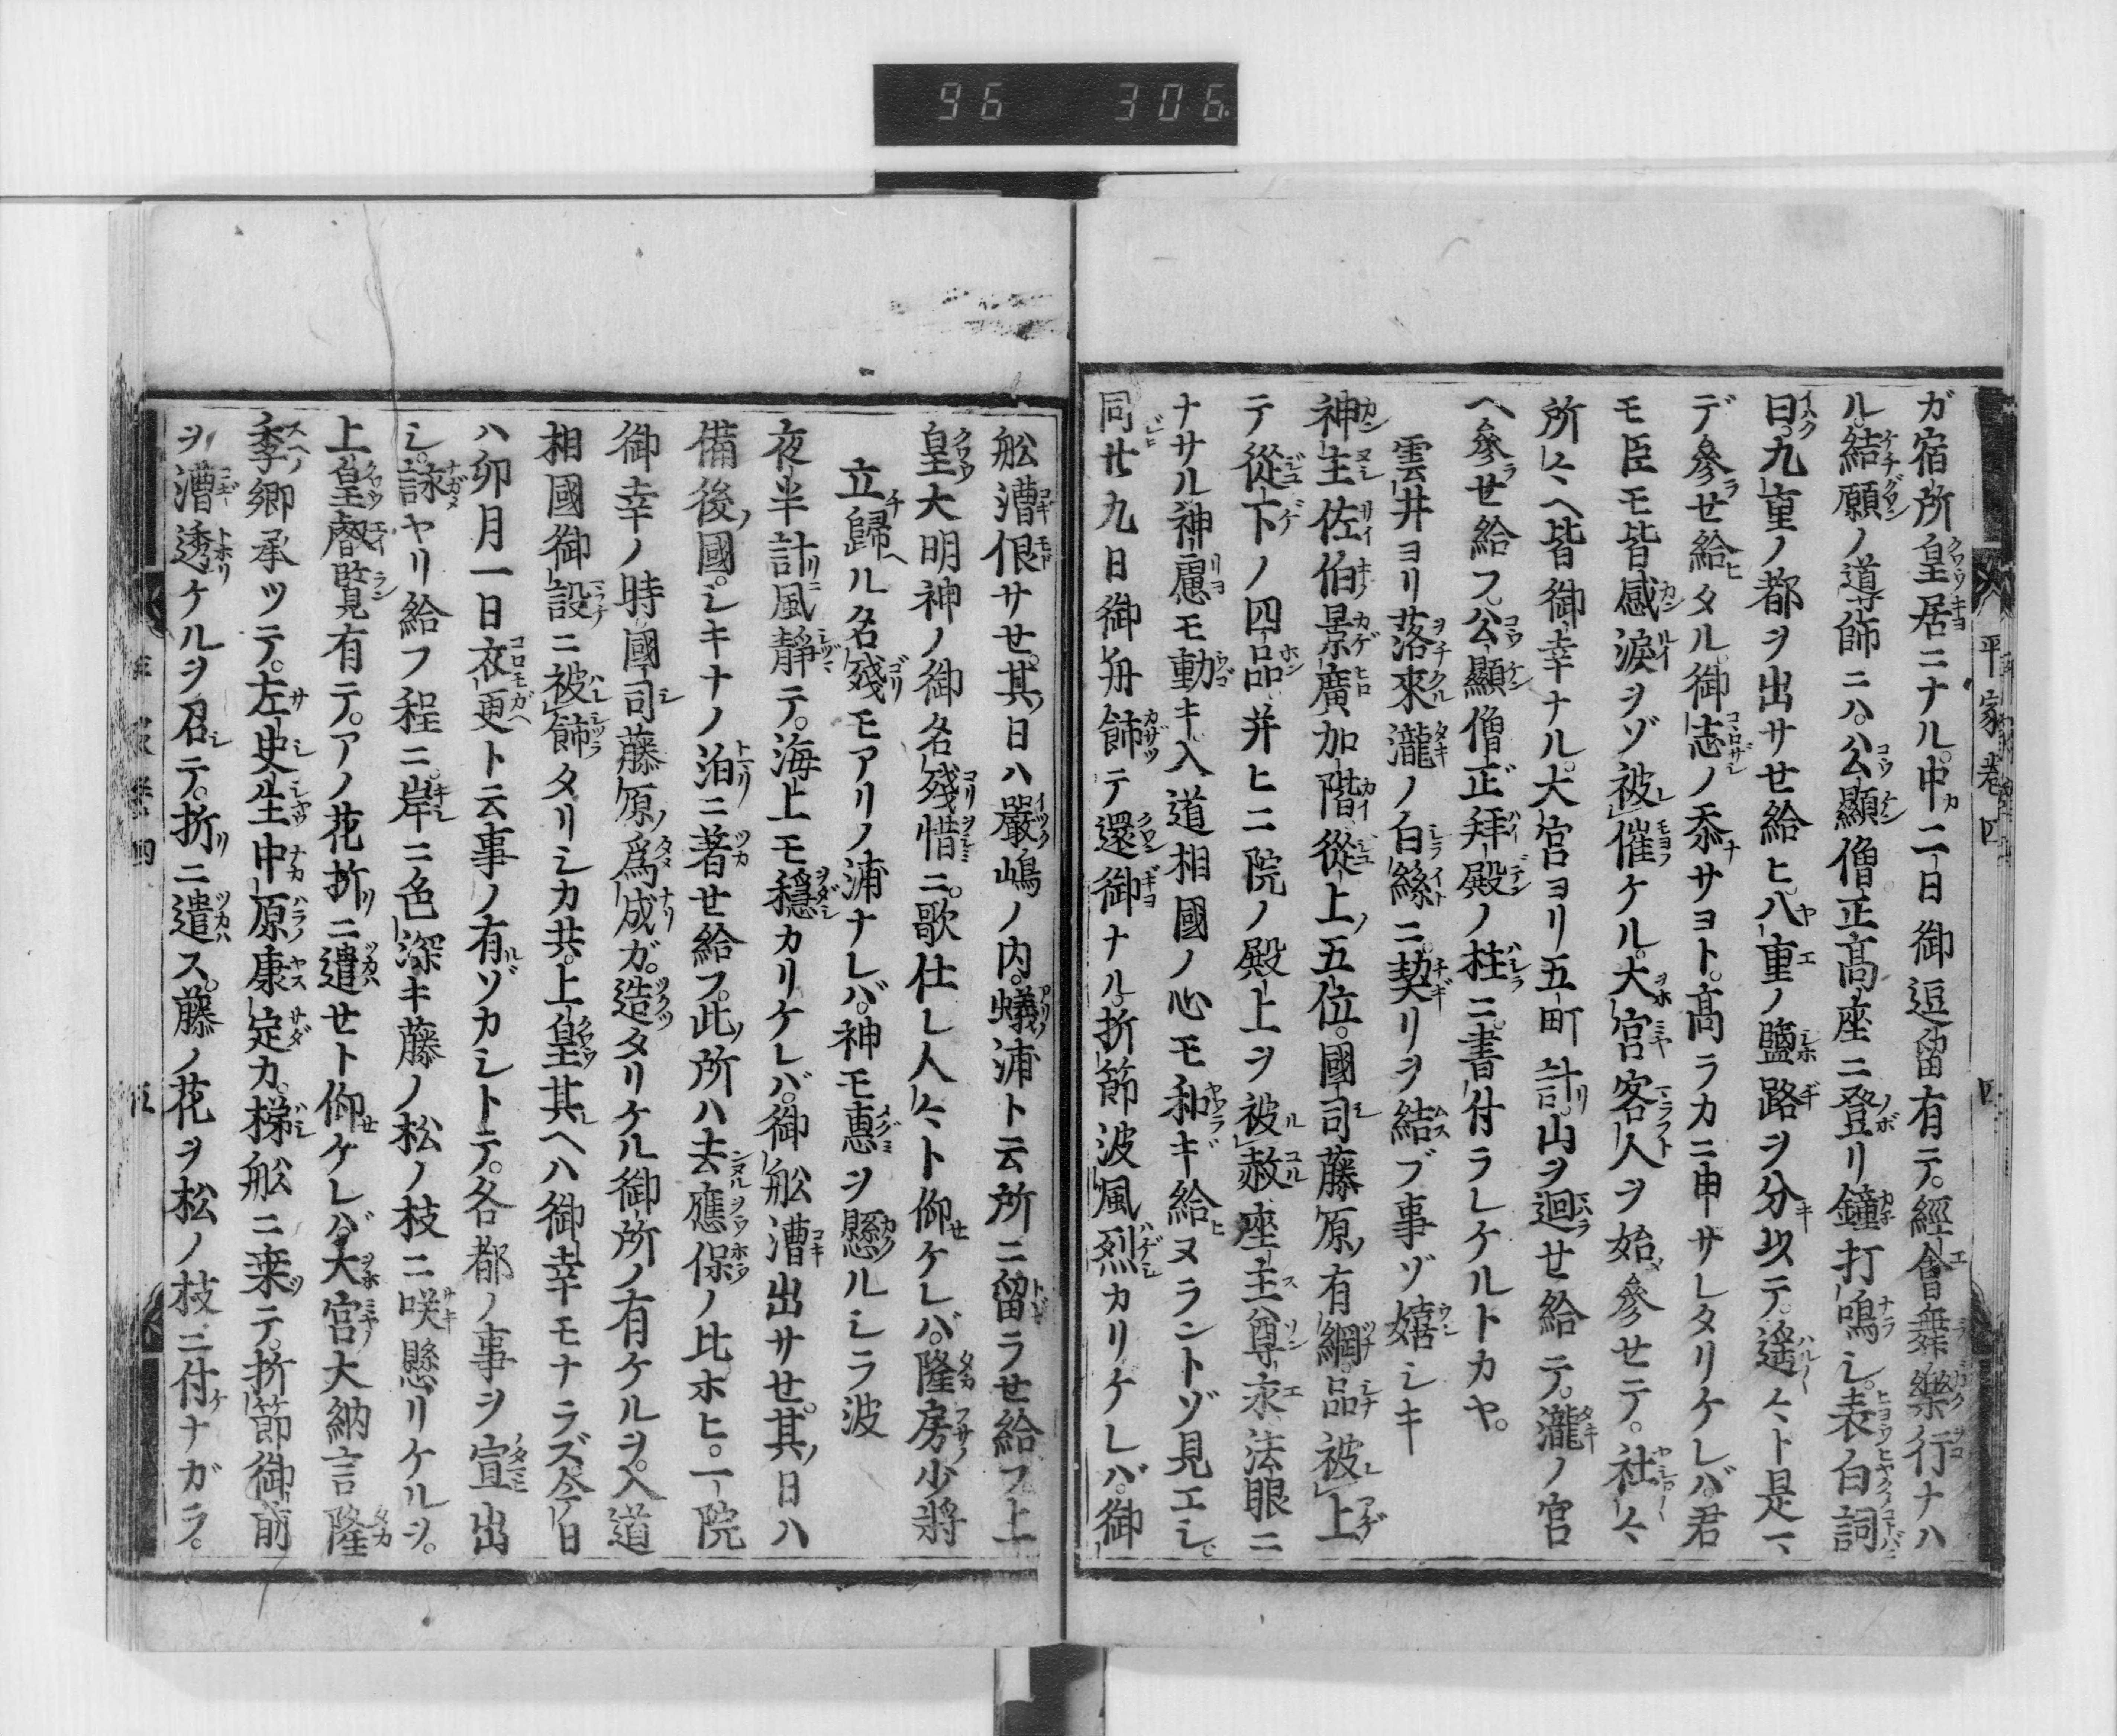 96 306
平家巻四 四
ガ宿所皇居ニナル。中二日御逗留有テ。經會舞樂行ナハ
ル。結願ノ導師ニハ。公顯僧正高座ニ登リ鐘打鳴シ。表白詞
曰。九重ノ都ヲ出サせ給ヒ。八重ノ鹽路ヲ分以テ。遥々ト是マ
デ參せ給タル。御志ノ忝サヨト。高ラカニ申サレタリケレバ。君
モ臣モ皆感涙ヲゾ被催ケル。大宮客人ヲ始參せテ。社々
所々ヘ皆御幸ナル。大宮ヨリ五町計。山ヲ迴せ給テ。瀧ノ宮
ヘ參せ給フ。公顯僧正拜殿ノ柱ニ。書付ラレケルトカヤ。
雲井ヨリ落來瀧ノ白絲ニ。契リヲ結ブ事ゾ嬉シキ
神主佐伯景廣加階從上ノ五位。國司藤原有綱。品被上
テ從下ノ四品并ヒニ院ノ殿上ヲ被赦。座主尊永法眼ニ
ナサル。神慮モ動キ。入道相國ノ心モ和ギ給ヌラントゾ見エシ。
同廿九日御舟飾テ還御ナル。折節波風烈カリケレバ。御
舩漕佷サせ。其日ハ嚴嶋ノ内。蟻浦ト云所ニ留ラせ給フ上
皇大明神ノ御名殘惜ニ。歌仕レ人々ト仰ケレバ。隆房少將
立歸ル名殘モアリノ浦ナレバ。神モ惠ヲ懸ルシラ波
夜半計風靜テ。海上モ穩カリケレバ。御舩漕出サせ。其日ハ
備後國。シキナノ泊ニ著せ給フ。此所ハ去應保ノ比ホヒ。一院
御幸ノ時國司藤原爲成ガ。造タリケル御所ノ有ケルヲ。入道
相國御設ニ被飾タリシカ共。上皇其ヘハ御幸モナラズ今日
ハ卯月一日衣更ト云事ノ有ゾカシトテ。各都ノ事ヲ宣出
シ。詠ヤリ給フ程ニ。岸ニ色深キ藤ノ松ノ枝ニ咲懸リケルヲ。
上皇睿覧有テ。アノ花折ニ遣せト仰ケレバ。大宮大納言隆
季卿承ツテ。左史生中原康定カ。梯舩ニ乗テ。折節御前
ヲ漕透ケルヲ召テ。折ニ遣ス。藤ノ花ヲ松ノ枝ニ付ナガラ。